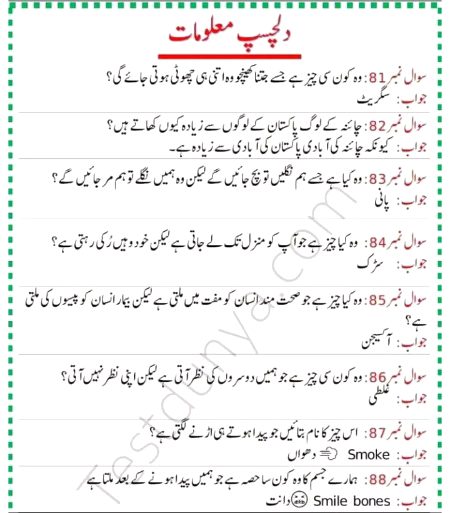 دلچسپ معلومات
سوال نمبر 81: وہ کون سی چیز ہے جسے جتنا کھینچو وہ اتنی ہی چھوٹی ہوتی جائے گی؟
جواب: سگریٹ
سوال نمبر 82: چائنہ کے لوگ پاکستان کے لوگوں سے زیادہ کیوں کھاتے ہیں؟
جواب: کیونکہ چائنہ کی آبادی پاکستان کی آبادی سے زیادہ ہے۔
سوال نمبر 83: وہ کیا ہے جسے ہم نگلیں تو بچ جائیں گے لیکن وہ ہمیں نگلے تو ہم مر جائیں گے؟
جواب: پانی
سوال نمبر 84: وہ کیا چیز ہے جو آپ کو منزل تک لے جاتی ہے لیکن خود وہیں رُکی رہتی ہے؟
جواب: سڑک
سوال نمبر 85: وہ کیا چیز ہے جو صحت مند انسان کو مفت میں ملتی ہے لیکن بیمار انسان کو پیسوں کی ملتی
ہے؟
جواب: آکسیجن
سوال نمبر 86: وہ کون سی چیز ہے جو ہمیں دوسروں کی نظر آتی ہے لیکن اپنی نظر نہیں آتی؟
جواب: غلطی
سوال نمبر 87: اس چیز کا نام بتائیں جو پیدا ہوتے ہی اڑنے لگتی ہے؟
جواب: Smoke 💨 دھواں
سوال نمبر 88: ہمارے جسم کا وہ کون سا حصہ ہے جو ہمیں پیدا ہونے کے بعد ملتا ہے
جواب: Smile bones 😁 دانت
Testdunya.com